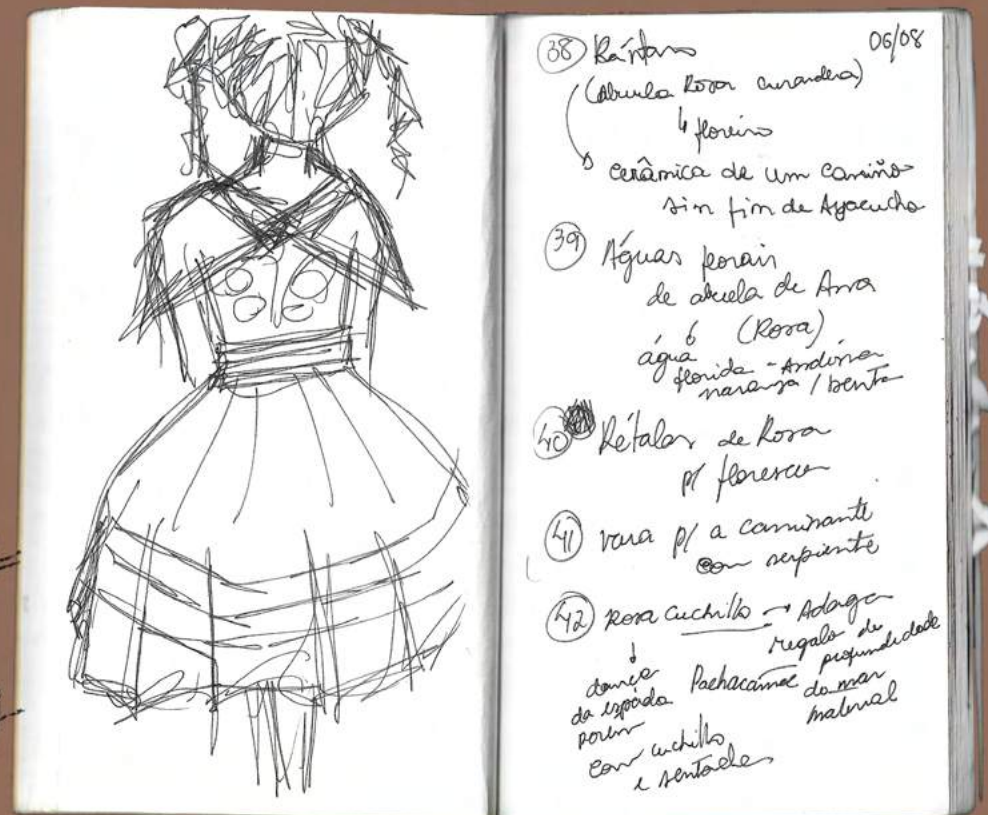 06/08
38
(Abuela Rosa curandera)
↳ floreiro
cerâmica de um camiño
sin fim de Ayacucho
39 Águas florais
de abuela de Ana
(Rosa)
água
florida - Andina
naranja / benta
40 Pétalas de Rosa
p/ florescer
41 vara p/ a caminante
con serpiente
42 Rosa Cuchillo → Adaga
regalo de
profundidade
do mar
dança
da espada
porém
Pachacámac
com cuchillo
e